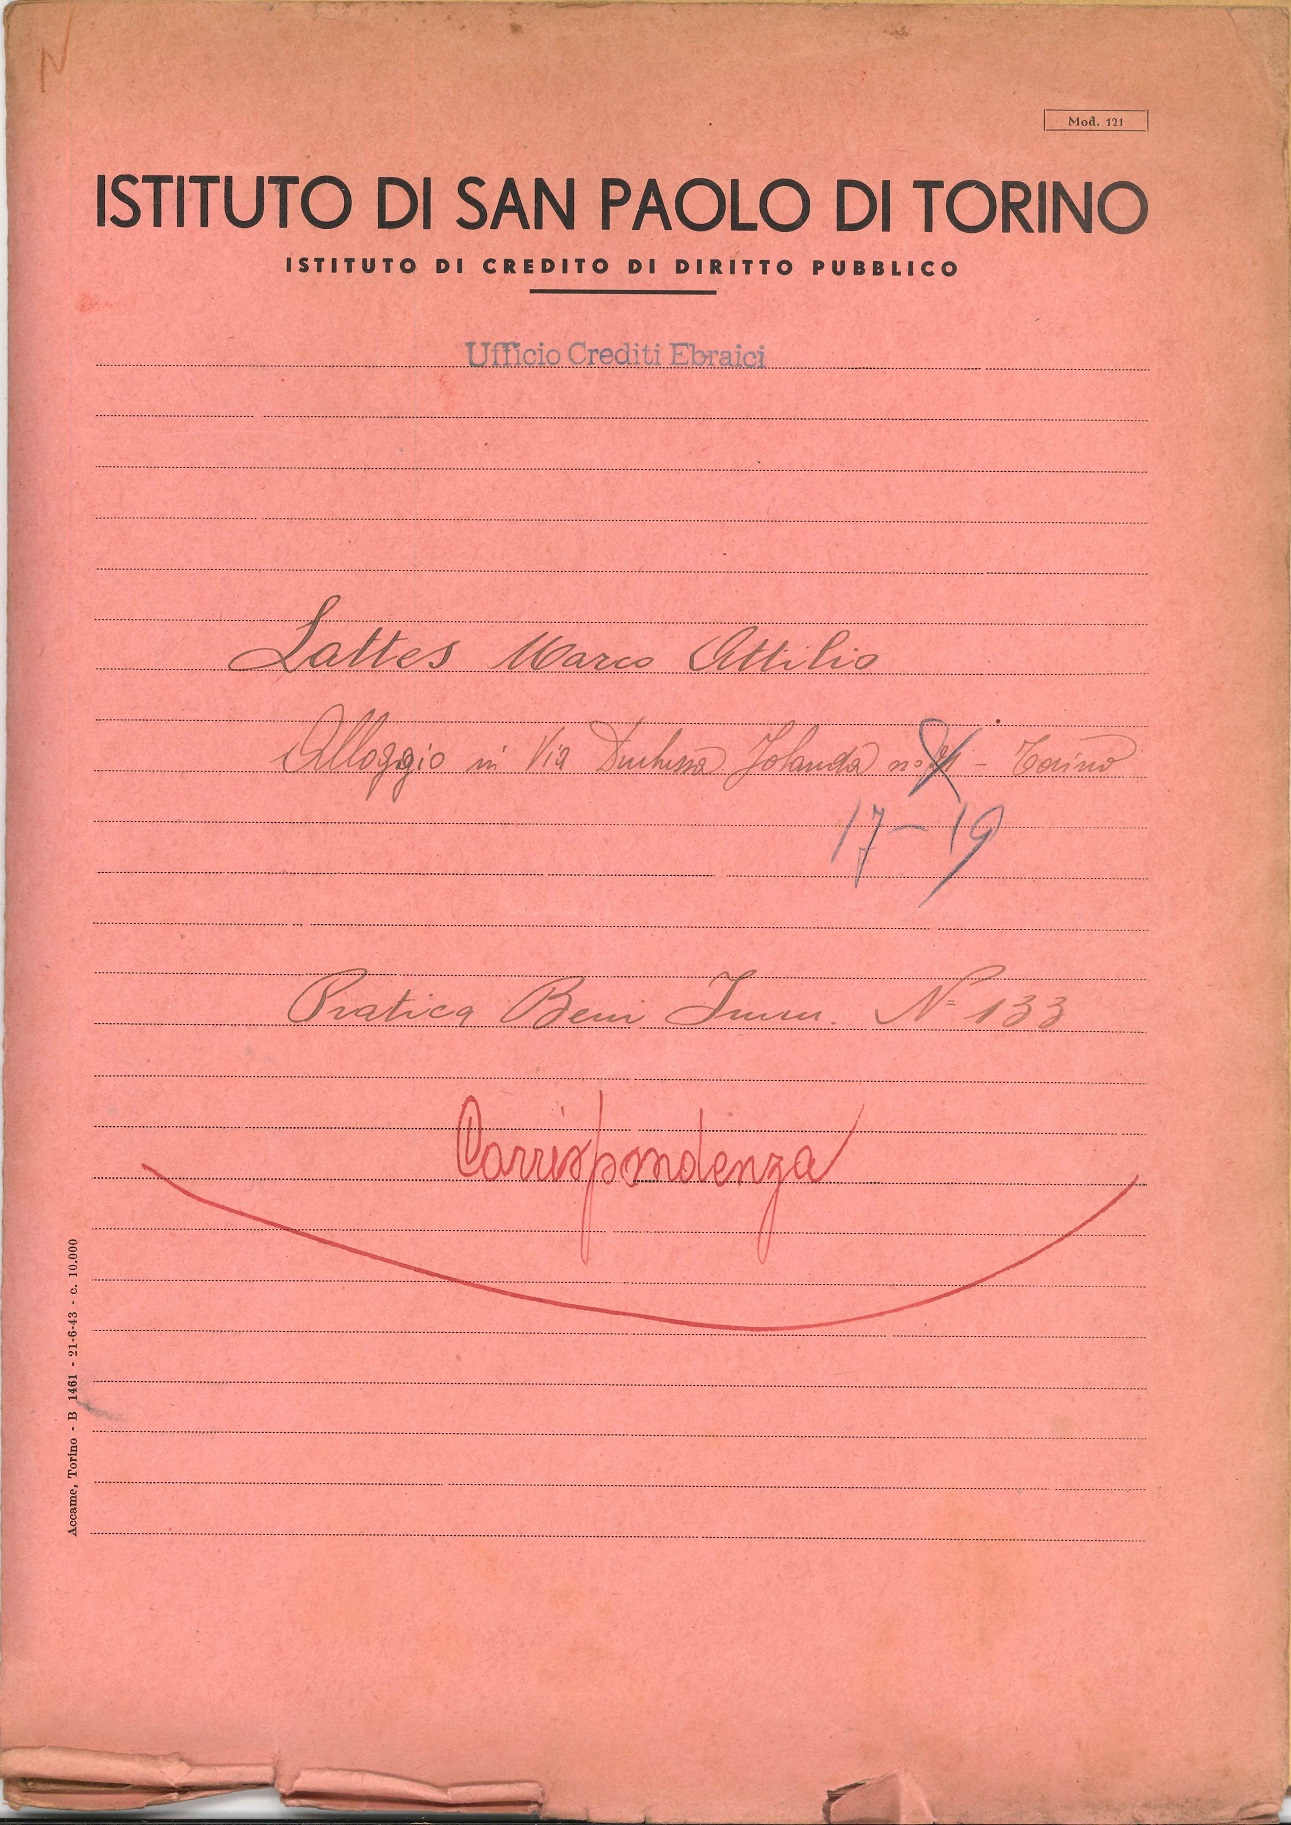 N
Mod. 121
ISTITUTO DI SAN PAOLO DI TORINO
ISTITUTO DI CREDITO DI DIRITTO PUBBLICO
Ufficio Crediti Ebraici
Lattes Marco Attilio
Alloggio in Via Duchessa Jolanda no - Torino
17-19
Pratica Beni Imm. N= 133
Corrispondenza
Accame, Torino - B 1461 - 21-6-43 - c. 10.000